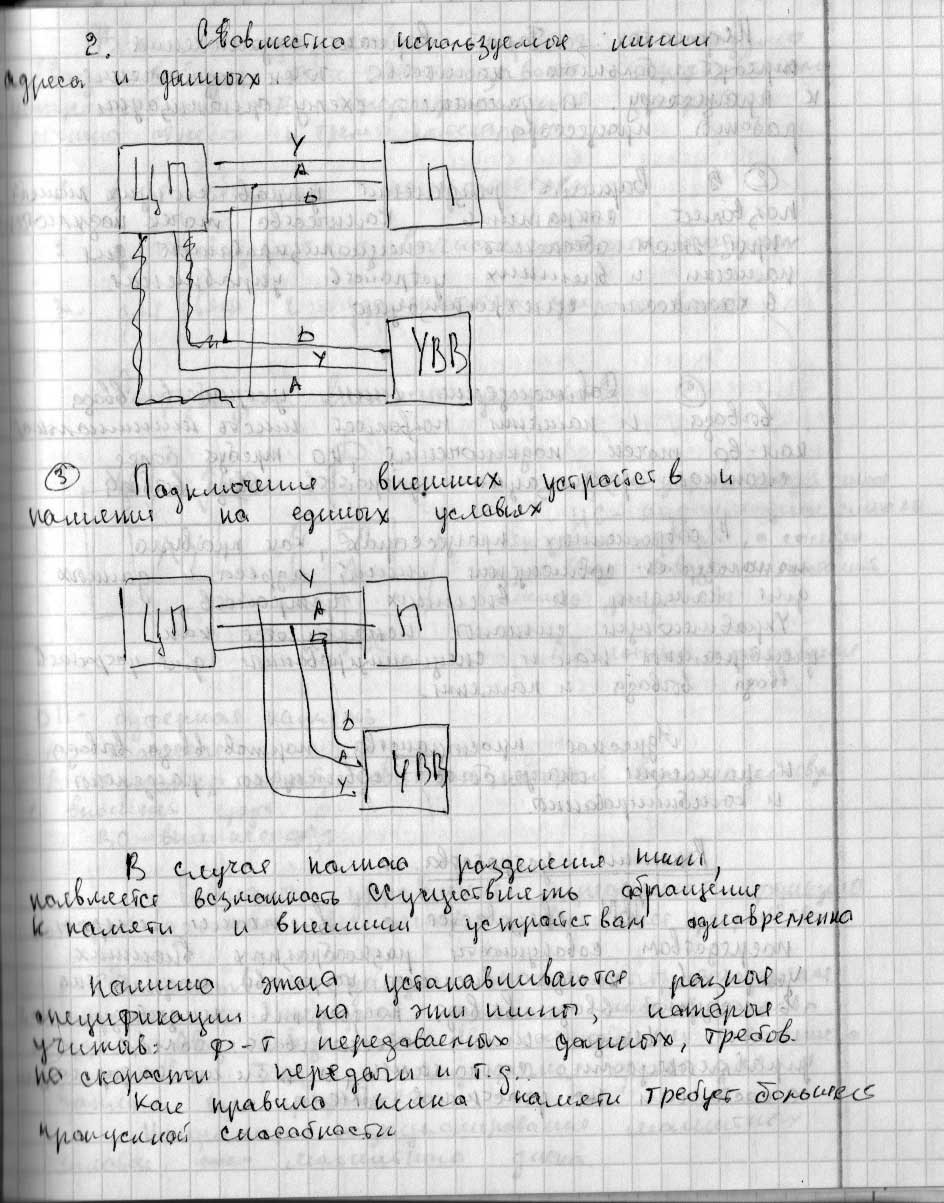 2. Совместно используемое линии
адреса и данных
У
А
D
ЦП
П
D
У
А
УВВ
3 Подключение внешних устройств и
памяти на единых условиях
У
А
D
ЦП
П
D
А
У
УВВ
В случае полного разделения шин,
появляется возможность осуществлять обращение
к памяти и внешним устройствам одновременно
Помимо этого устанавливаются разные
спецификации на эти шины, которые
учитыв. ф-т передаваемых данных, требов.
по скорости передачи и т.д.
Как правило шина памяти требует большей
пропускной способности